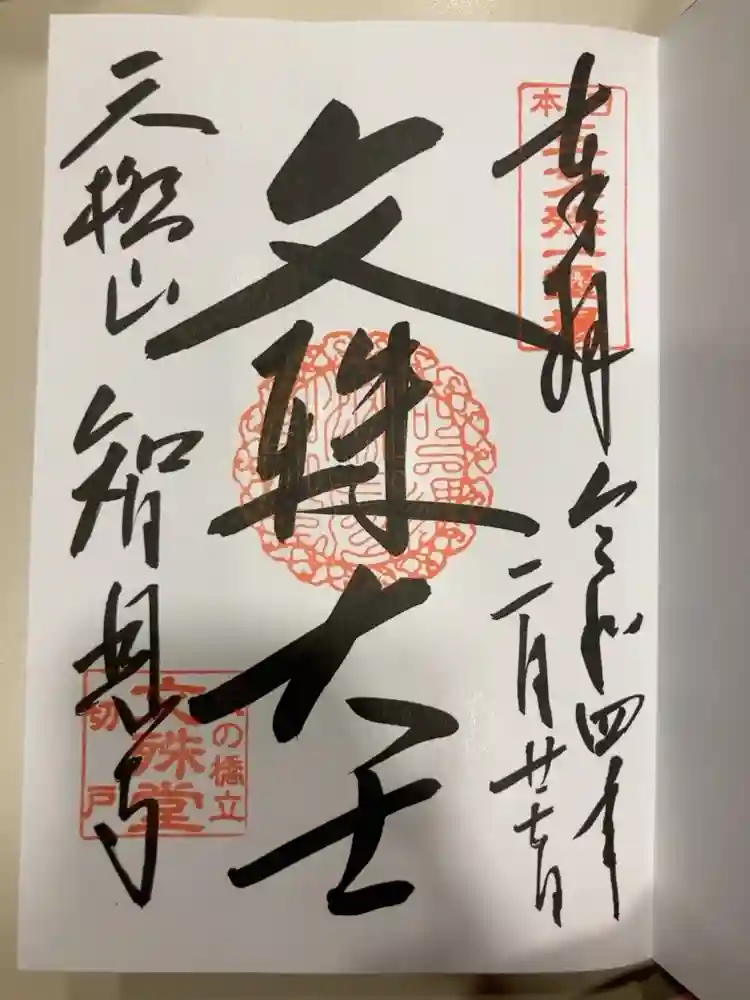 奉拝
令和四年
二月廿七日
文殊大士
天橋山
智恩寺
天の橋立
文殊堂
切戸